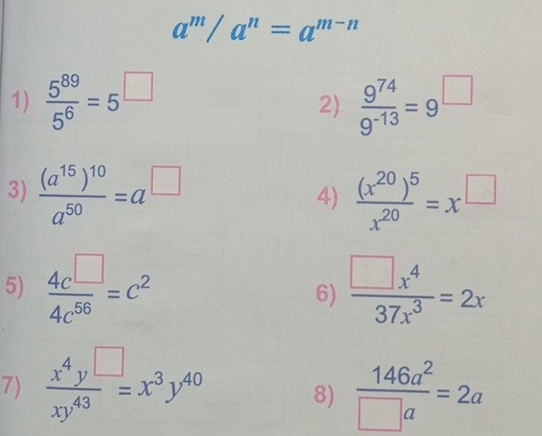 a^m / a^n = a^{m-n}
1) \frac{5^{89}}{5^{6}} = 5^{□}
2) \frac{9^{74}}{9^{-13}} = 9^{□}
3) \frac{(a^{15})^{10}}{a^{50}} = a^{□}
4) \frac{(x^{20})^{5}}{x^{20}} = x^{□}
5) \frac{4c^{□}}{4c^{56}} = c^{2}
6) \frac{□x^{4}}{37x^{3}} = 2x
7) \frac{x^{4}y^{□}}{xy^{43}} = x^{3}y^{40}
8) \frac{146a^{2}}{□a} = 2a